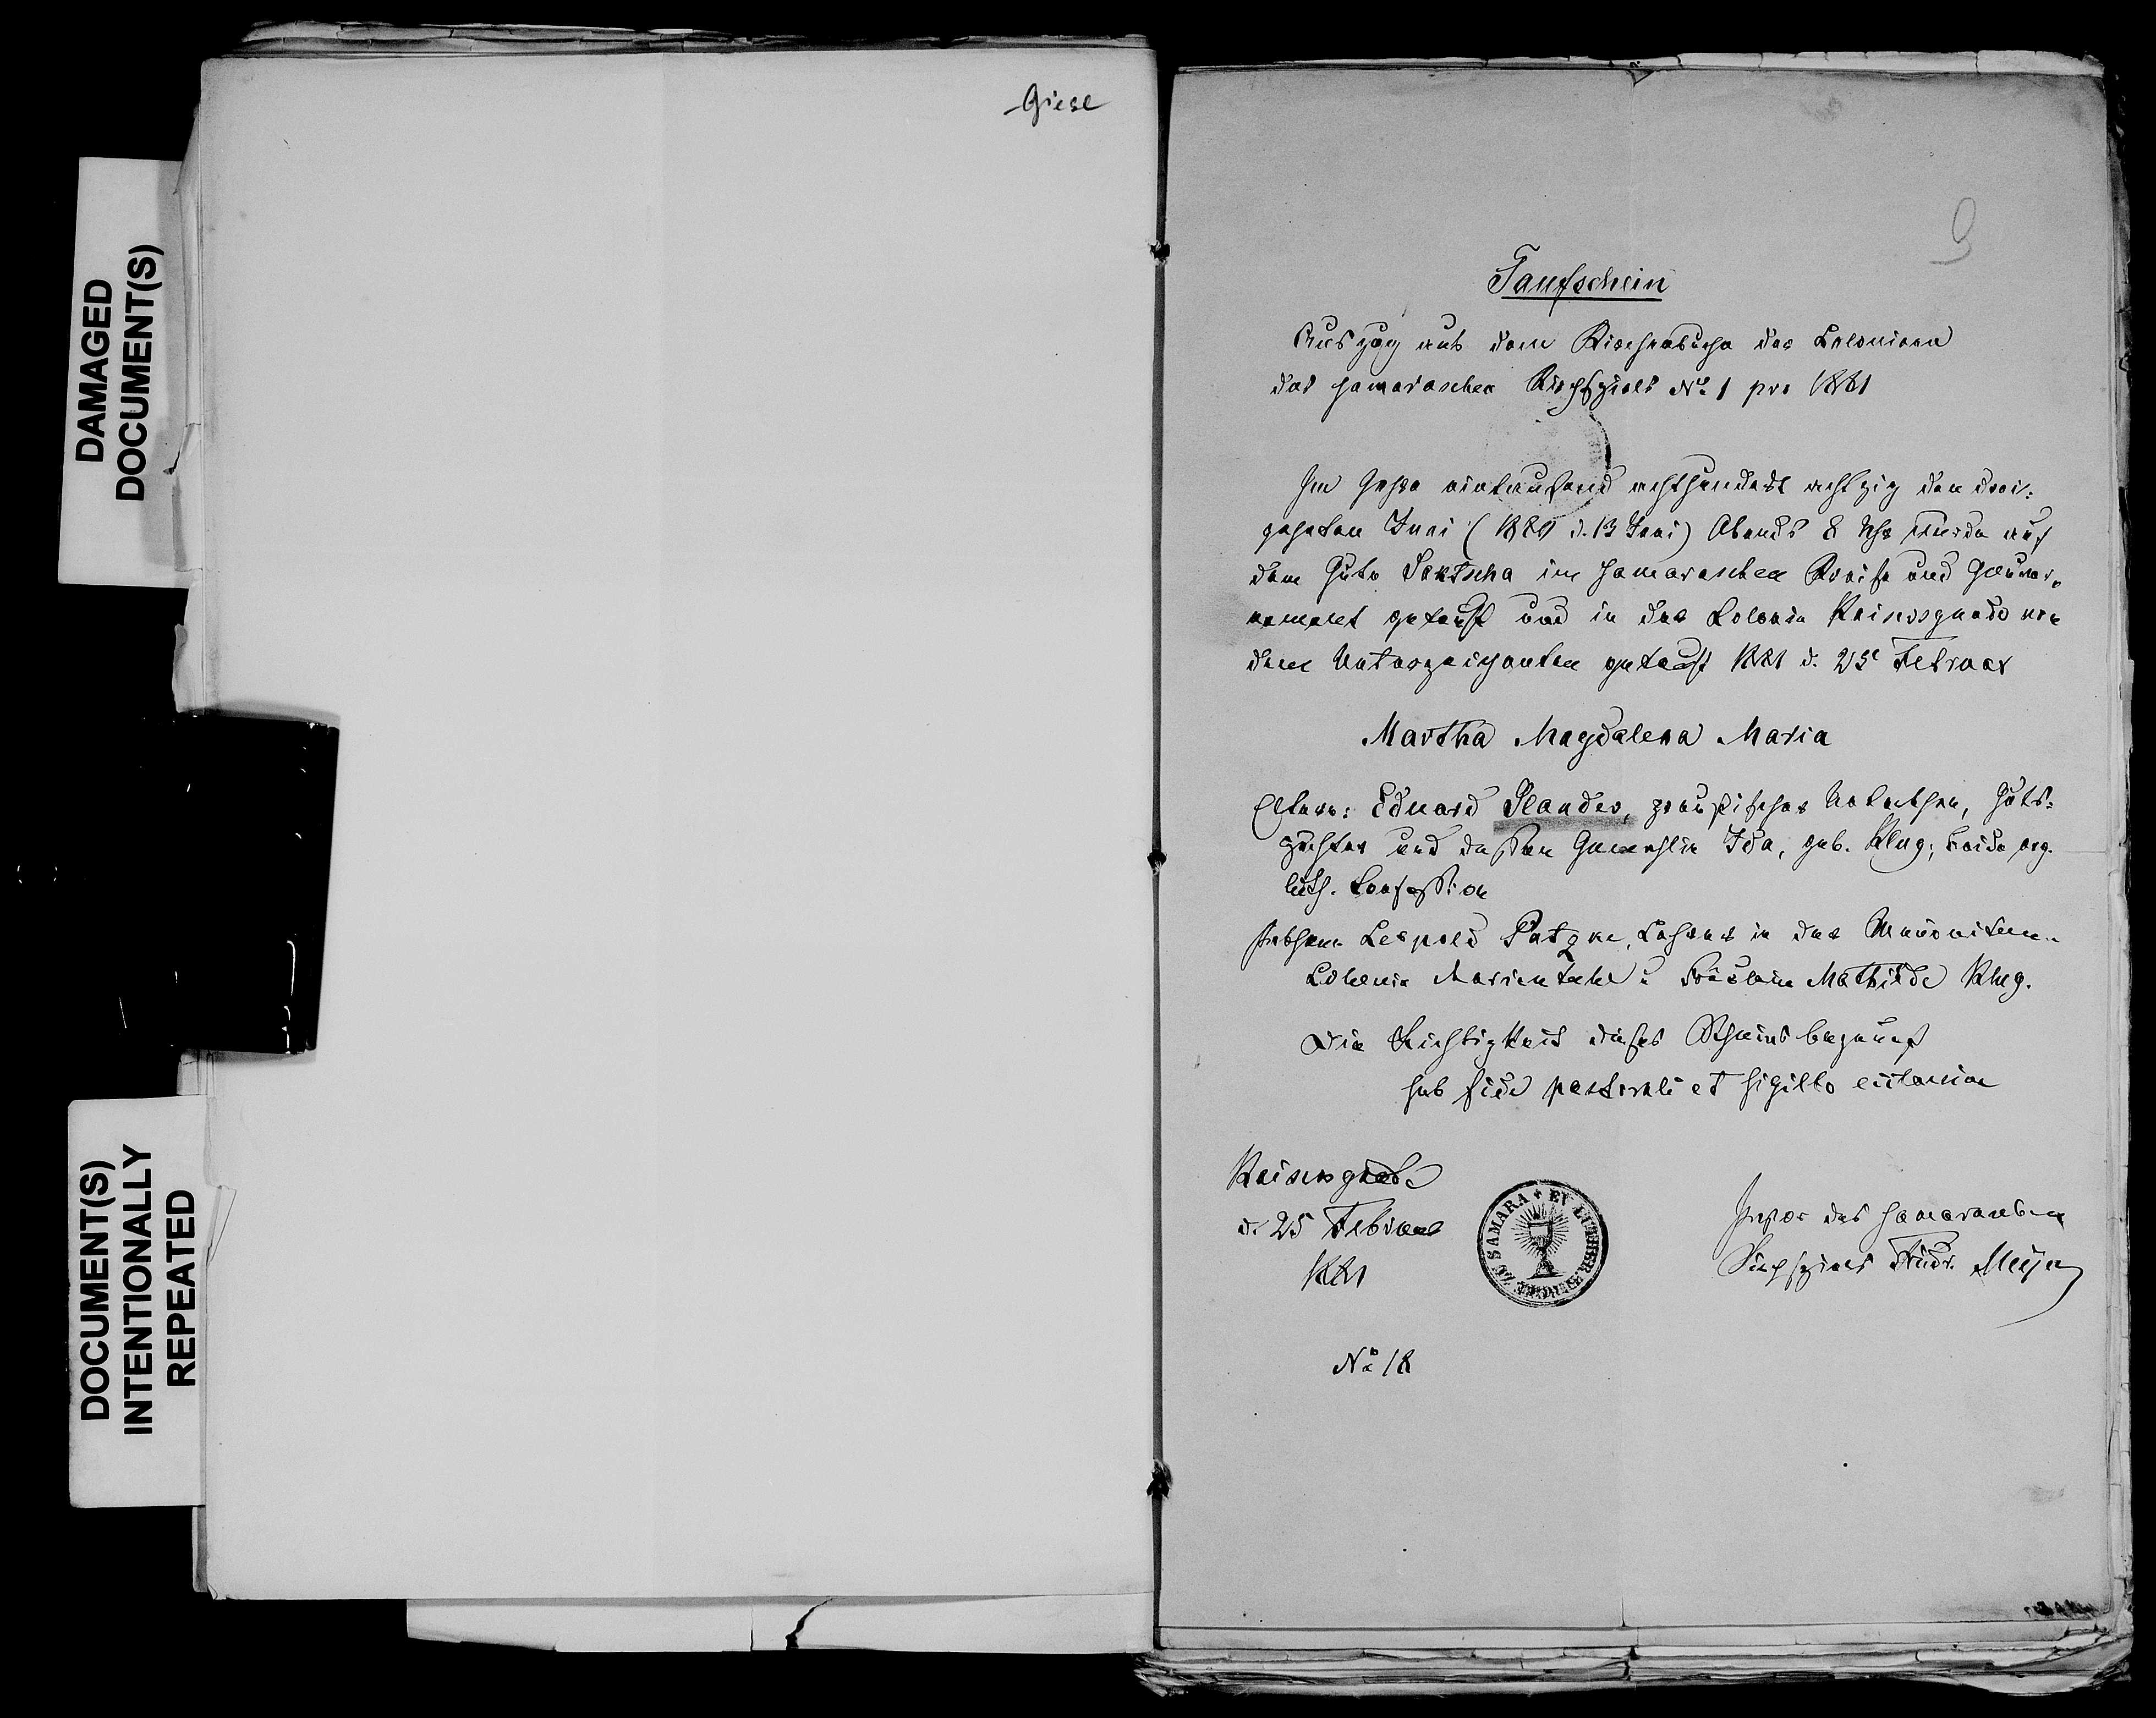 Giese
DAMAGED
DOCUMENT(S)
DOCUMENT(S)
INTENTIONALLY
REPEATED
9
Taufschein
Auszug aus dem Kirchenbuche der Colonieen
des samaraschen Kirchspiels No. 1 pro 1881
Im Jahre eintausend achthundert achtzig den drei-
zehnten Juni (1880 d. 13 Juni) Abends 8 Uhr wurde auf
dem Gute Toktscha im Samaraschen Kreise und Gouver-
nement getauft und in der Colonie Kaisersgnade von
dem Unterzeichneten getauft 1881 d. 25 Februar
Martha Magdalena Maria
Eltern: Eduard Plander, preußischer Unterthan, Guts-
pächter und dessen Gemahlin Ida, geb. Klug; beide evg.
luth. Confession
Leopold Patzke, Lehrer in der Mennoniten-
Colonie Marienthal u. Fräulein Mathilde Klug.
Die Richtigkeit dieses Scheins bezeugt
sub fide pastorali et sigillo
Kaisersgnade
d. 25 Februar
1881
ZU SAMARA + EV. LUTHER. KIRCHE
Pastor des samaraschen
Kirchspiels Meyer
No. 18